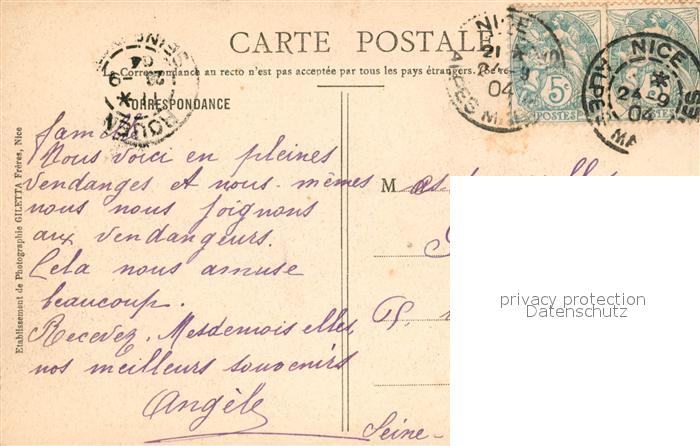 CARTE POSTALE
La Correspondance au recto n'est pas acceptée par tous les pays étrangers. (Se
CORRESPONDANCE
NICE
24-9
04
ALPES MA
NICE
24-9
04
ALPES MA
5c
POSTES
POSTES
ROUEN
04
Nous voici en pleines
vendanges et nous-mêmes
nous nous joignons
aux vendangeurs.
Cela nous amuse
beaucoup.
Recevez, Mesdemoiselles,
nos meilleurs souvenirs
Angèle
M
Seine-
Etablissement de Photographie GILETTA Frères, Nice
privacy protection
Datenschutz